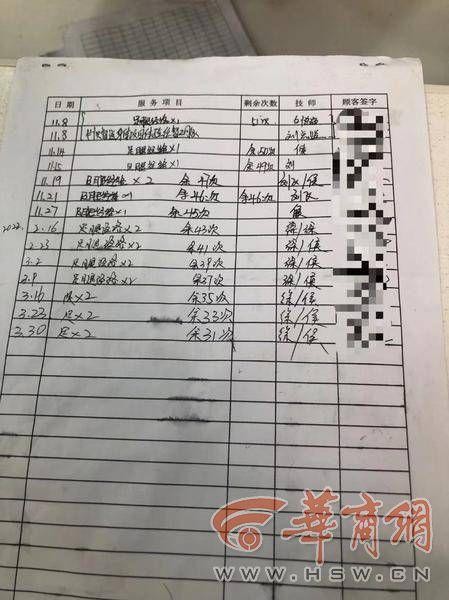 日期 服务项目 剩余次数 技师 顾客签字
11.8 足腿经络×1 51次
11.8
11.14 足腿经络×1 余50次 侯
11.15 足腿经络×1 余49次 刘
11.19 足腿经络×2 余47次 刘/侯
11.21 足腿经络×1 余46次 余46次 刘
11.27 足腿经络×1 余45次 侯
2022.
2.16 足腿经络×2 余43次 徐/侯
2.23 足腿经络×2 余41次 徐/侯
3.2 足腿经络×2 余39次 徐/侯
3.9 足腿经络×2 余37次 徐/侯
3.16 足×2 余35次 徐/侯
3.23 足×2 余33次 徐/侯
3.30 足×2 余31次 徐/侯
华商网
WWW.HSW.CN